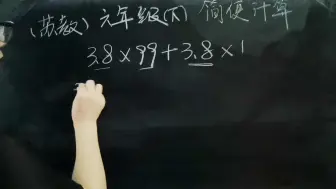 (苏教)六年级(下)简便计算
3.8×99+3.8×1